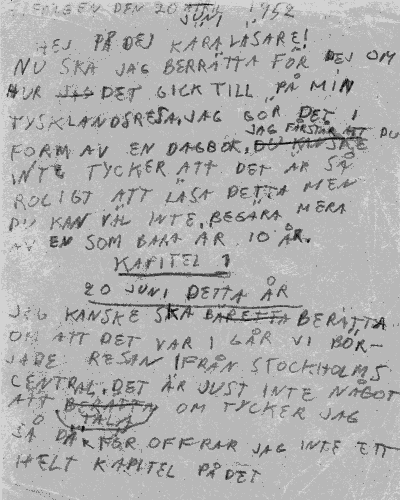 DEN 20 JUNI 1952
HEJ PÅ DEJ KÄRA LÄSARE!
NU SKA JAG BERRÄTTA FÖR DEJ OM
HUR JAG DET GICK TILL PÅ MIN
TYSKLANDSRESA. JAG GÖR DET I
JAG FÅRSTÅR ATT DU
FORM AV EN DAGBOK. DU KAN SKE
INTE TYCKER ATT DET ÄR SÅ
ROLIGT ATT LÄSA DETTA MEN
DU KAN VÄL INTE BEGÄRA MERA
AV EN SOM BARA ÄR 10 ÅR.
KAPITEL 1
20 JUNI DETTA ÅR
JAG KANSKE SKA BARETTA BERÄTTA
OM ATT DET VAR I GÅR VI BÖR-
JADE RESAN IFRÅN STOCKHOLMS
CENTRAL. DET ÄR JUST INTE NÅGOT
ATT BERÄTTA OM TYCKER JAG
TALA
SÅ DÄRFÖR OFFRAR JAG INTE ETT
HELT KAPITEL PÅ DET